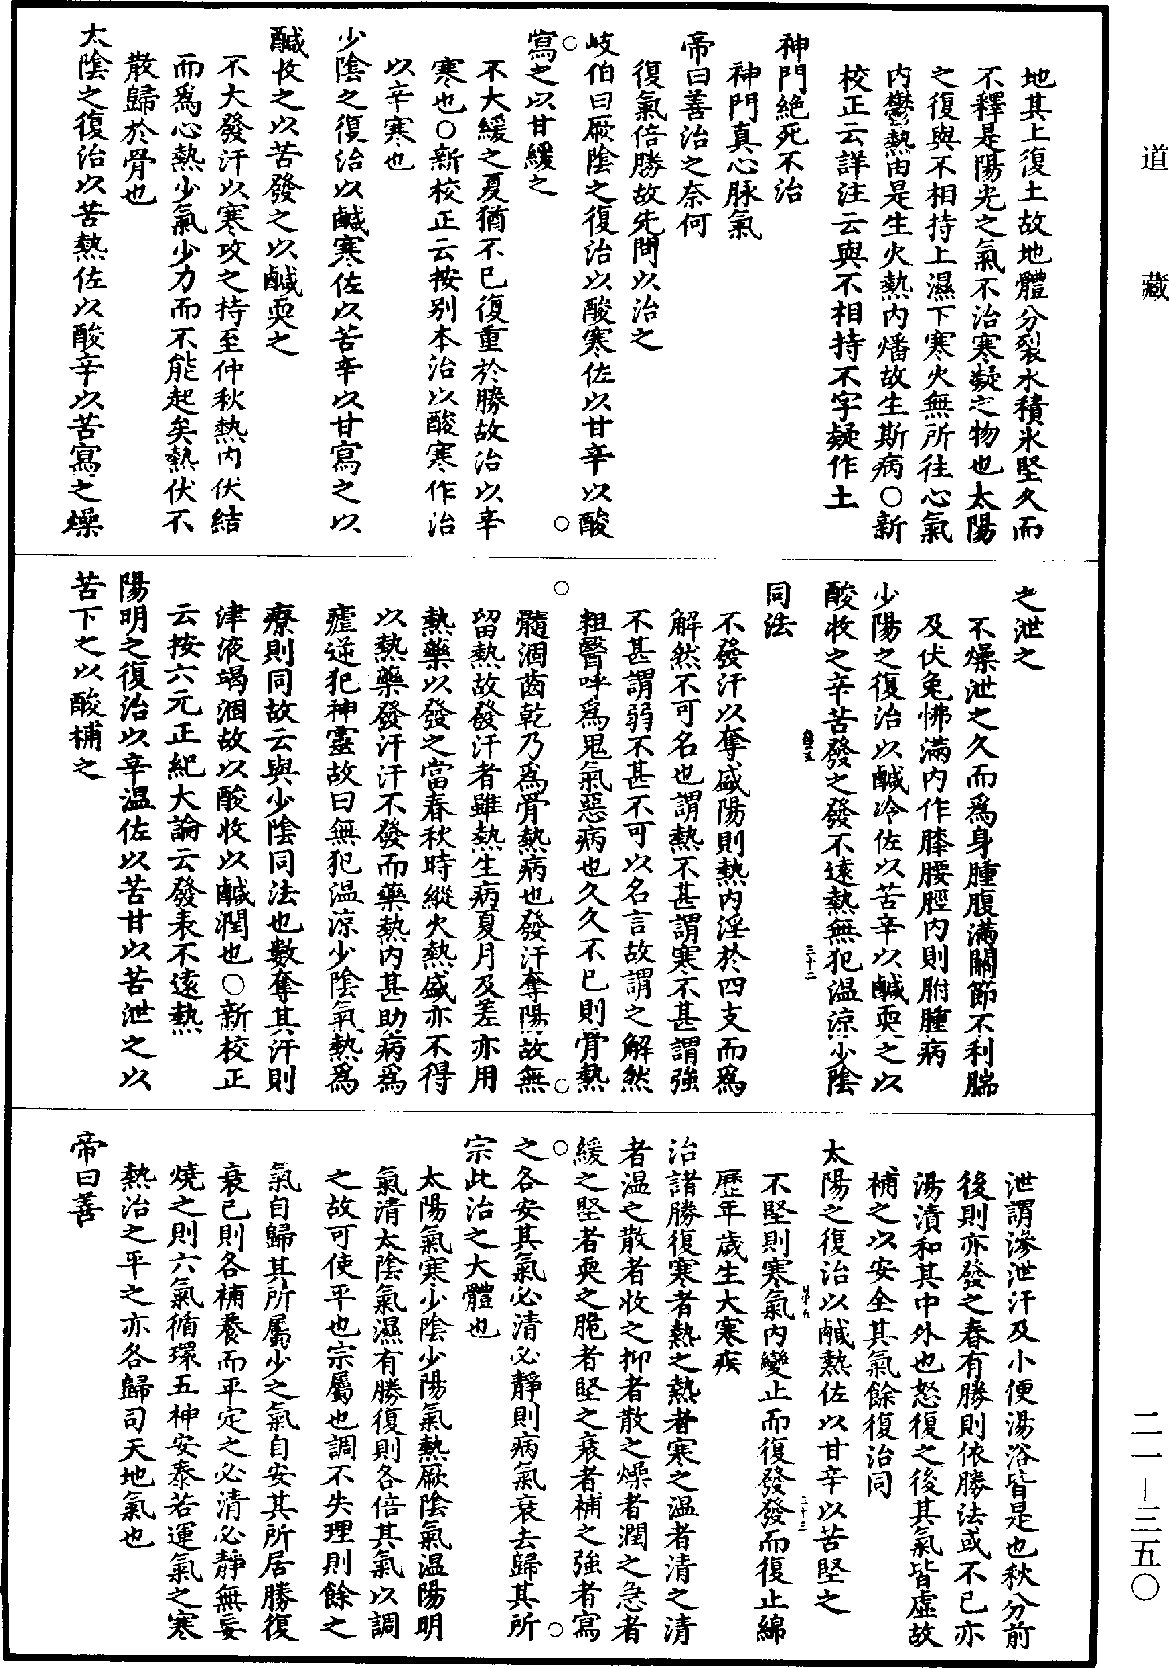 道藏
地其上復土故地體分裂水積氷堅久而
不釋是陽光之氣不治寒凝之物也太陽
之復與不相持上濕下寒火無所往心氣
內鬱熱由是生火熱內燔故生斯病○新
校正云詳注云與不相持不字疑作土
神門絕死不治
神門真心脉氣
帝曰善治之奈何
復氣倍勝故先問以治之
岐伯曰厥陰之復治以酸寒佐以甘辛以酸
寫之以甘緩之
不大緩之夏猶不已復重於勝故治以辛
寒也○新校正云按别本治以酸寒作治
以辛寒也
少陰之復治以鹹寒佐以苦辛以甘寫之以
鹹收之以苦發之以鹹耎之
不大發汗以寒攻之持至仲秋熱內伏結
而爲心熱少氣少力而不能起矣熱伏不
散歸於骨也
太陰之復治以苦熱佐以酸辛以苦寫之燥
之泄之
不燥泄之久而爲身腫腹滿關節不利腨
及伏兔怫滿內作膝腰脛內則胕腫病
少陽之復治以鹹冷佐以苦辛以鹹耎之以
酸收之辛苦發之發不遠熱無犯温涼少陰
三十二
同法
不發汗以奪盛陽則熱內淫於四支而爲
解㑊不可名也謂熱不甚謂寒不甚謂強
不甚謂弱不甚不可以名言故謂之解㑊
粗醫呼爲鬼氣惡病也久久不已則骨熱
髓涸齒乾乃爲骨熱病也發汗奪陽故無
留熱故發汗者雖熱生病夏月及差亦用
熱藥以發之當春秋時縱火熱盛亦不得
以熱藥發汗汗不發而藥熱內甚助病爲
瘧逆犯神靈故曰無犯温涼少陰氣熱爲
療則同故云與少陰同法也數奪其汗則
津液竭涸故以酸收以鹹潤也○新校正
云按六元正紀大論云發表不遠熱
陽明之復治以辛温佐以苦甘以苦泄之以
苦下之以酸補之
泄謂滲泄汗及小便湯浴皆是也秋分前
後則亦發之春有勝則依勝法或不已亦
湯漬和其中外也怒復之後其氣皆虛故
補之以安全其氣餘復治同
太陽之復治以鹹熱佐以甘辛以苦堅之
三十三
不堅則寒氣內變止而復發發而復止綿
歷年歲生大寒疾
治諸勝復寒者熱之熱者寒之温者清之清
者温之散者收之抑者散之燥者潤之急者
緩之堅者耎之脆者堅之衰者補之強者寫
之各安其氣必清必靜則病氣衰去歸其所
宗此治之大體也
太陽氣寒少陰少陽氣熱厥陰氣温陽明
氣清太陰氣濕有勝復則各倍其氣以調
之故可使平也宗屬也調不失理則餘之
氣自歸其所屬少之氣自安其所居勝復
衰已則各補養而平定之必清必靜無妄
燒之則六氣循環五神安泰若運氣之寒
熱治之平之亦各歸司天地氣也
帝曰善
二一—三五〇